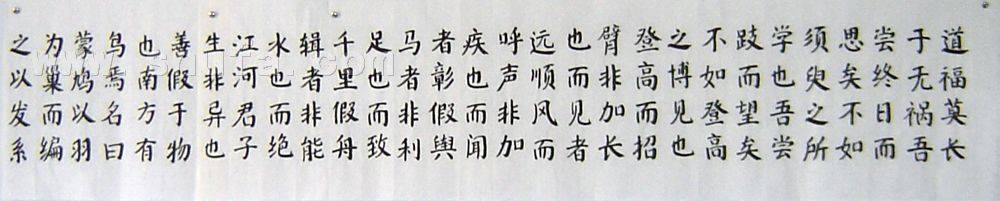 道福莫长
于无祸吾
尝终日而
思矣不如
须臾之所
学也吾尝
跂而望矣
不如登高
之博见也
登高而招
臂非加长
也而见者
远顺风而
呼声非加
疾也而闻
者彰假舆
马者非利
足也而致
千里假舟
辑者非能
水也而绝
江河君子
生非异也
善假于物
也南方有
鸟焉名曰
蒙鸠以羽
为巢而编
之以发系